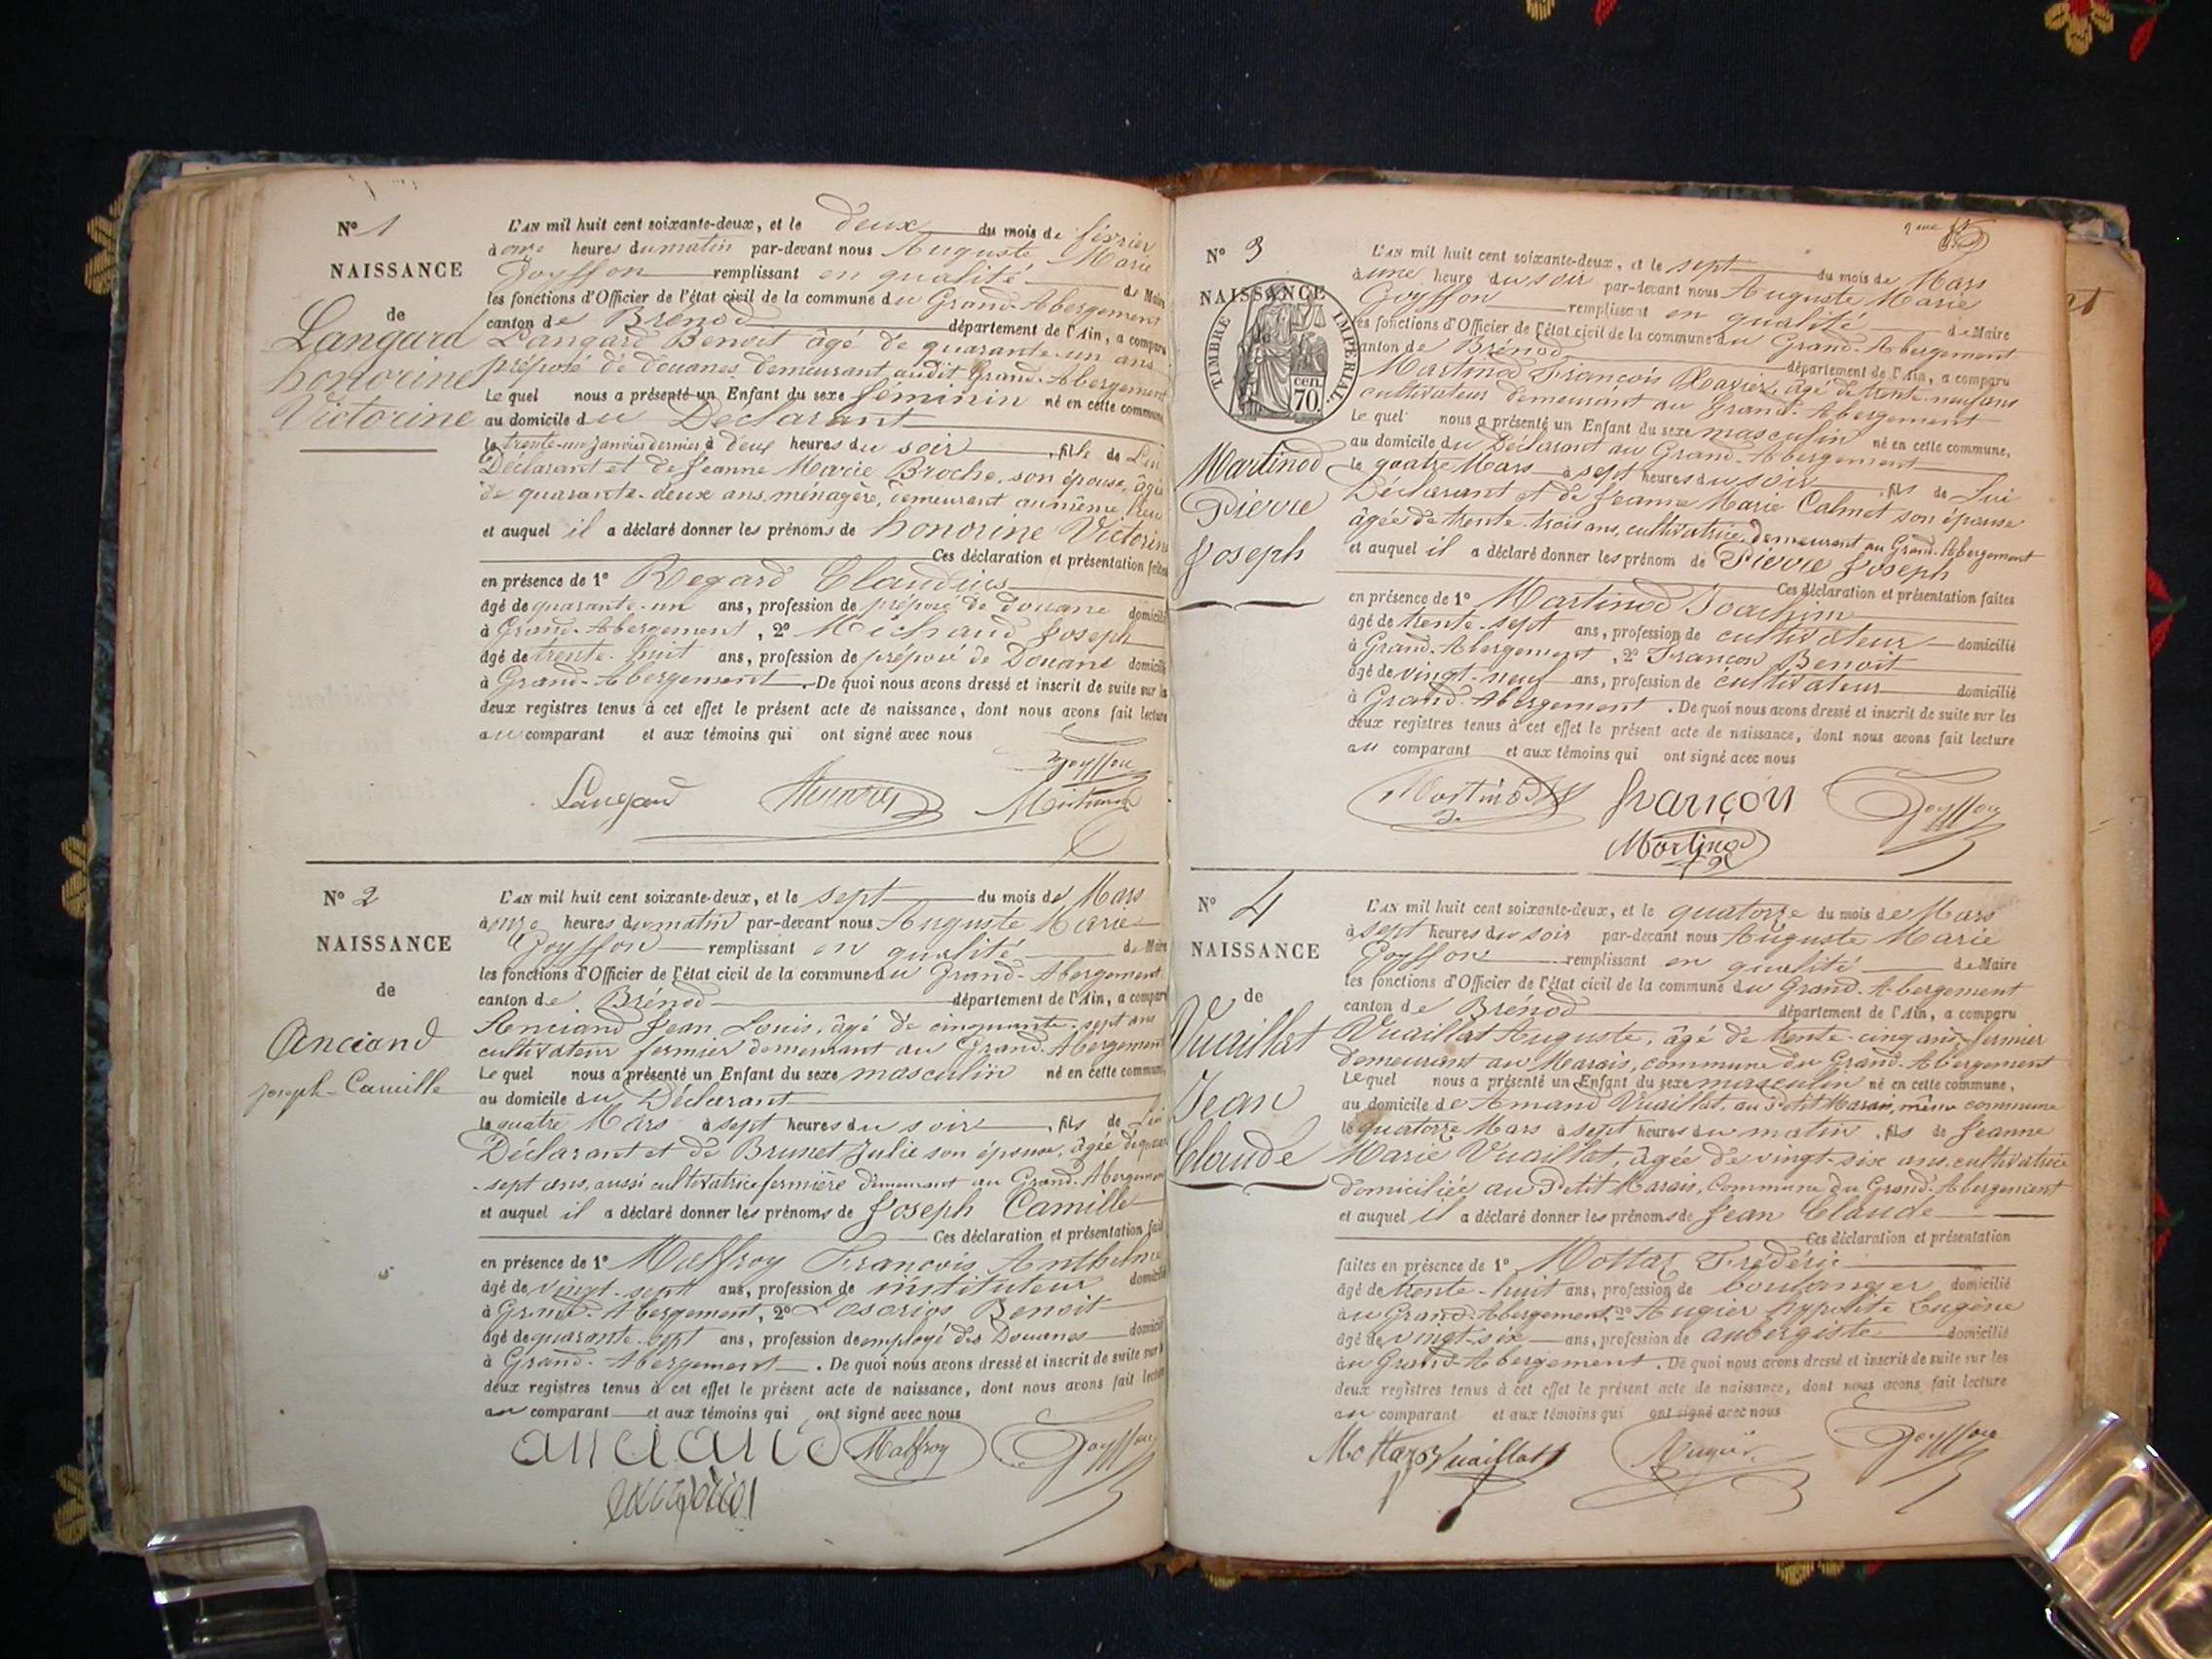 N° 1
NAISSANCE
de
Langard
honorine
Victorine
L'AN mil huit cent soixante-deux, et le deux du mois de février
à onze heures du matin par-devant nous Auguste Marie
Goyffon remplissant en qualité de Maire
les fonctions d'Officier de l'état civil de la commune du Grand-Abergement
canton de Brénod département de l'Ain, a comparu
Langard Benoit âgé de quarante-un ans
préposé de douanes, demeurant audit Grand-Abergement
Le quel nous a présenté un Enfant du sexe féminin né en cette commune,
au domicile du Déclarant
le trente-un janvier dernier à deux heures du soir, fille de Lui
Déclarant et de Jeanne Marie Broche, son épouse, âgée
de quarante-deux ans, ménagère, demeurant au même lieu
et auquel il a déclaré donner les prénoms de honorine Victorine
Ces déclaration et présentation faites
en présence de 1° Regard Claudius
âgé de quarante-un ans, profession de préposé de douane domicilié
à Grand-Abergement, 2° Michaud Joseph
âgé de trente-huit ans, profession de préposé de Douane domicilié
à Grand-Abergement. De quoi nous avons dressé et inscrit de suite sur les
deux registres tenus à cet effet le présent acte de naissance, dont nous avons fait lecture
au comparant et aux témoins qui ont signé avec nous
Goyffon
Langard
N° 2
NAISSANCE
de
Anciand
Joseph-Camille
L'AN mil huit cent soixante-deux, et le sept du mois de Mars
à onze heures du matin par-devant nous Auguste Marie
Goyffon remplissant en qualité de Maire
les fonctions d'Officier de l'état civil de la commune du Grand-Abergement
canton de Brénod département de l'Ain, a comparu
Anciand Jean Louis, âgé de cinquante-sept ans
cultivateur fermier demeurant au Grand-Abergement
Le quel nous a présenté un Enfant du sexe masculin né en cette commune,
au domicile du Déclarant
le quatre Mars à sept heures du soir, fils de Lui
Déclarant et de Brunet Julie son épouse, âgée de
-sept ans, aussi cultivatrice fermière demeurant au Grand-Abergement
et auquel il a déclaré donner les prénoms de Joseph Camille
Ces déclaration et présentation faites
en présence de 1° Malfroy François Anthelme
âgé de vingt-sept ans, profession de instituteur domicilié
à Grand-Abergement, 2° Benoit
âgé de quarante-sept ans, profession de employé des Douanes domicilié
à Grand-Abergement. De quoi nous avons dressé et inscrit de suite sur les
deux registres tenus à cet effet le présent acte de naissance, dont nous avons fait lecture
au comparant et aux témoins qui ont signé avec nous
anciand Malfroy Goyffon
N° 3
NAISSANCE
de
TIMBRE IMPÉRIAL
70 cen.
Martinod
Pierre
Joseph
L'AN mil huit cent soixante-deux, et le sept du mois de Mars
à une heure du soir par-devant nous Auguste Marie
Goyffon remplissant en qualité de Maire
les fonctions d'Officier de l'état civil de la commune du Grand-Abergement
canton de Brénod département de l'Ain, a comparu
Martinod François Xavier, âgé de trente-neuf ans
cultivateur demeurant au Grand-Abergement
Le quel nous a présenté un Enfant du sexe masculin né en cette commune,
au domicile du Déclarant au Grand-Abergement
le quatre Mars à sept heures du soir, fils de Lui
Déclarant et de Jeanne Marie Calmet son épouse
âgée de trente-trois ans, cultivatrice, demeurant au Grand-Abergement
et auquel il a déclaré donner les prénom de Pierre Joseph
Ces déclaration et présentation faites
en présence de 1° Martinod Joachim
âgé de trente-sept ans, profession de cultivateur domicilié
à Grand-Abergement, 2° Françon Benoit
âgé de vingt-neuf ans, profession de cultivateur domicilié
à Grand-Abergement. De quoi nous avons dressé et inscrit de suite sur les
deux registres tenus à cet effet le présent acte de naissance, dont nous avons fait lecture
au comparant et aux témoins qui ont signé avec nous
Martinod françon Goyffon
Martinod
N° 4
NAISSANCE
de
Vuaillat
Jean
Claude
L'AN mil huit cent soixante-deux, et le quatorze du mois de Mars
à sept heures du soir par-devant nous Auguste Marie
Goyffon remplissant en qualité de Maire
les fonctions d'Officier de l'état civil de la commune du Grand-Abergement
canton de Brénod département de l'Ain, a comparu
Vuaillat Auguste, âgé de trente-cinq ans, fermier
demeurant au Marais, commune du Grand-Abergement
Le quel nous a présenté un Enfant du sexe masculin né en cette commune,
au domicile de Amand Vuaillat, au Petit Marais, même commune
le quatorze Mars à sept heures du matin, fils de Jeanne
Marie Vuaillat, âgée de vingt-six ans, cultivatrice
domiciliée au Petit Marais, Commune du Grand-Abergement
et auquel il a déclaré donner les prénoms de Jean Claude
Ces déclaration et présentation
faites en présence de 1° Mottaz Frédéric
âgé de trente-huit ans, profession de boulanger domicilié
au Grand-Abergement, 2° Augier hypolite Eugène
âgé de vingt-six ans, profession de aubergiste domicilié
au Grand-Abergement. De quoi nous avons dressé et inscrit de suite sur les
deux registres tenus à cet effet le présent acte de naissance, dont nous avons fait lecture
au comparant et aux témoins qui ont signé avec nous
Mottaz Vuaillat Augier Goyffon